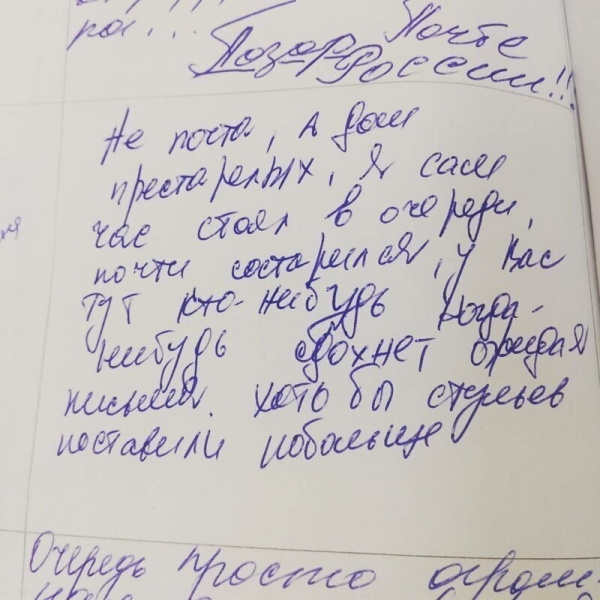 Позор Почте
России!!!
Не почта, а дом
престарелых, я сам
час стоял в очереди,
почти состарился, у вас
тут кто-нибудь когда-
нибудь сдохнет ожидая
письма. хотя бы стульев
поставили побольше
Очередь просто огром-